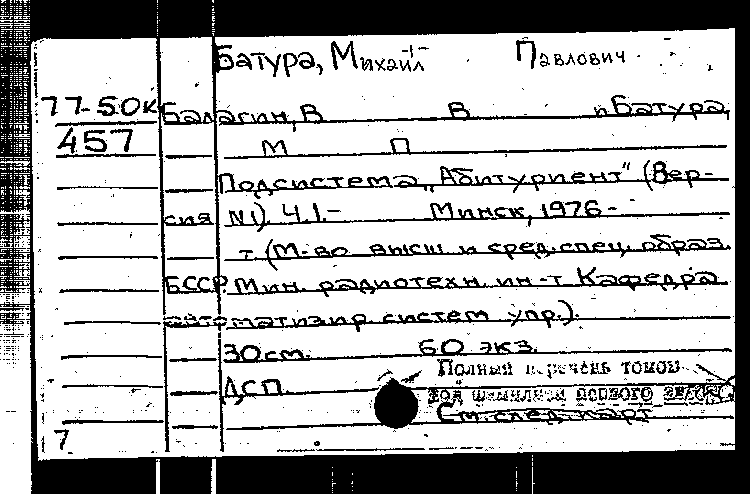 Батура, Михаил Павлович
77-50к Балагин, В В и Батура,
457 М П
Подсистема "Абитуриент" (Вер-
сия N1). Ч.1.- Минск, 1976-
т. (М-во высш и сред. спец. образ.
БССР Мин. радиотехн. ин-т Кафедра
автоматизир систем упр.).
30см. 60 экз.
Полный перечень томов
ДСП.
под фамилией первого автора
См. след карт
7